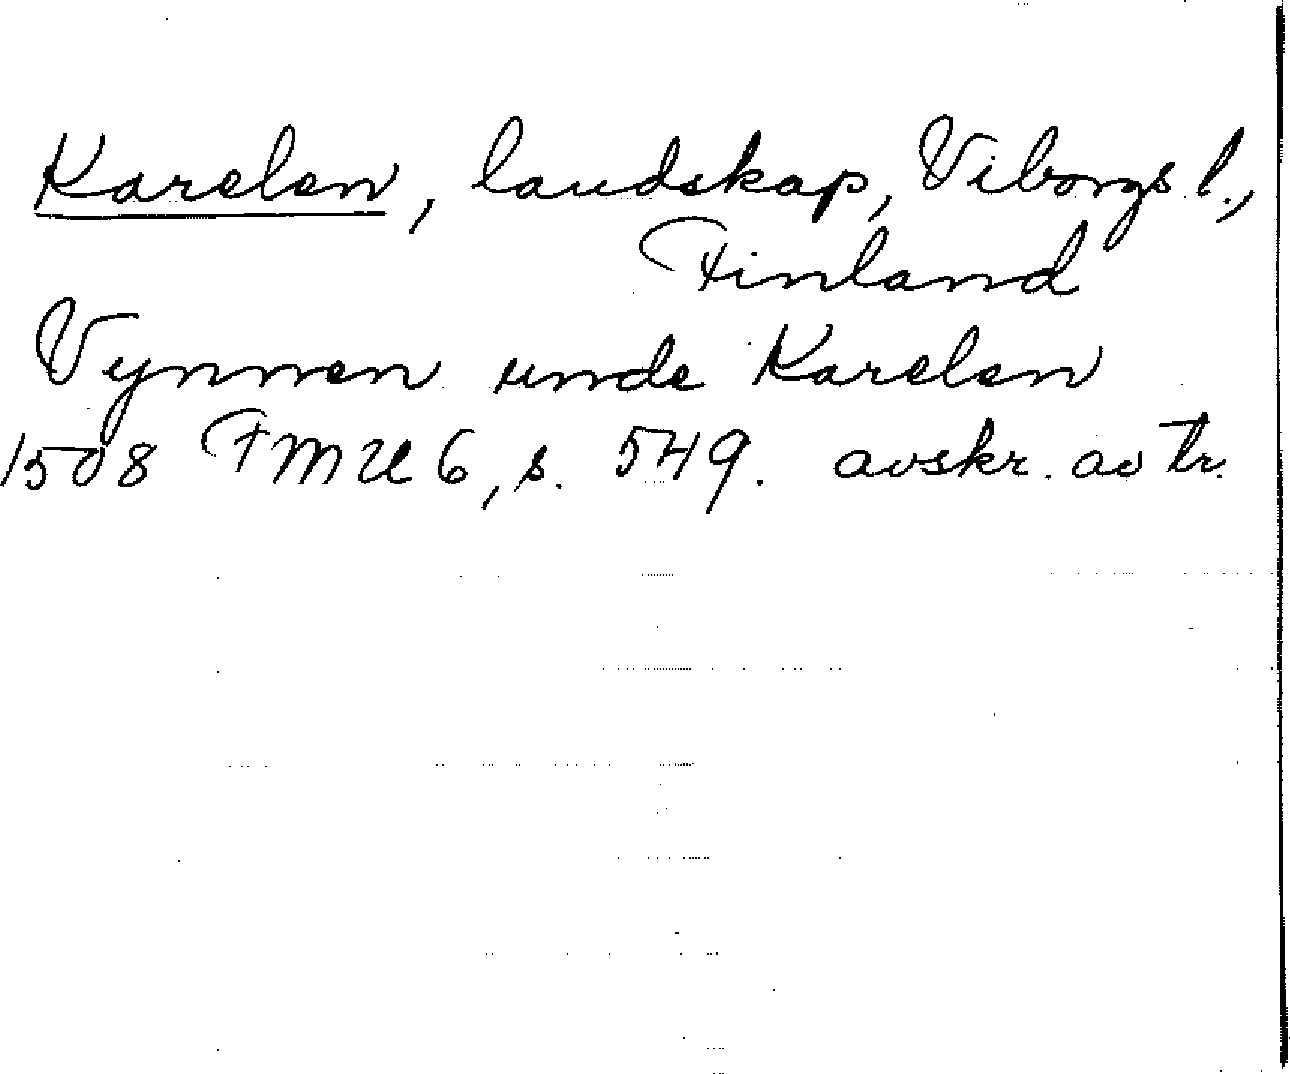 Karelen, landskap, Viborgs l.,
Finland
Vynnen unde Karelen
1508 FMU 6, s. 549. avskr. av tr.